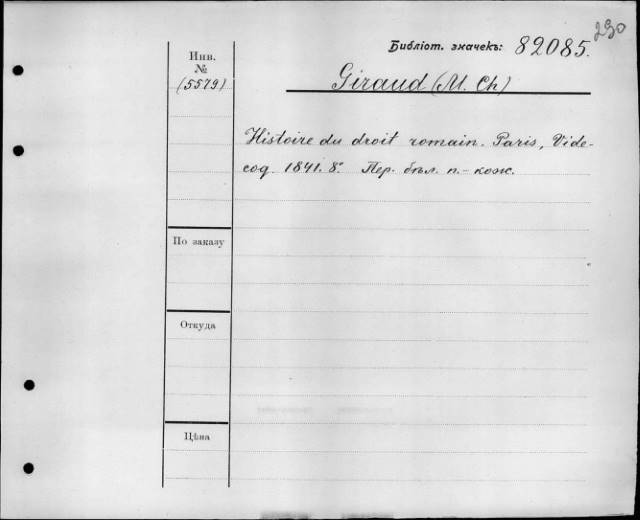 290
Библіот. значекъ: 82085.
Инв.
№
(5579)
Giraud (M. Ch)
Histoire du droit romain. Paris, Vide-
coq. 1841. 8º. Пер. бѣл. п.-кож.
По заказу
Откуда
Цѣна